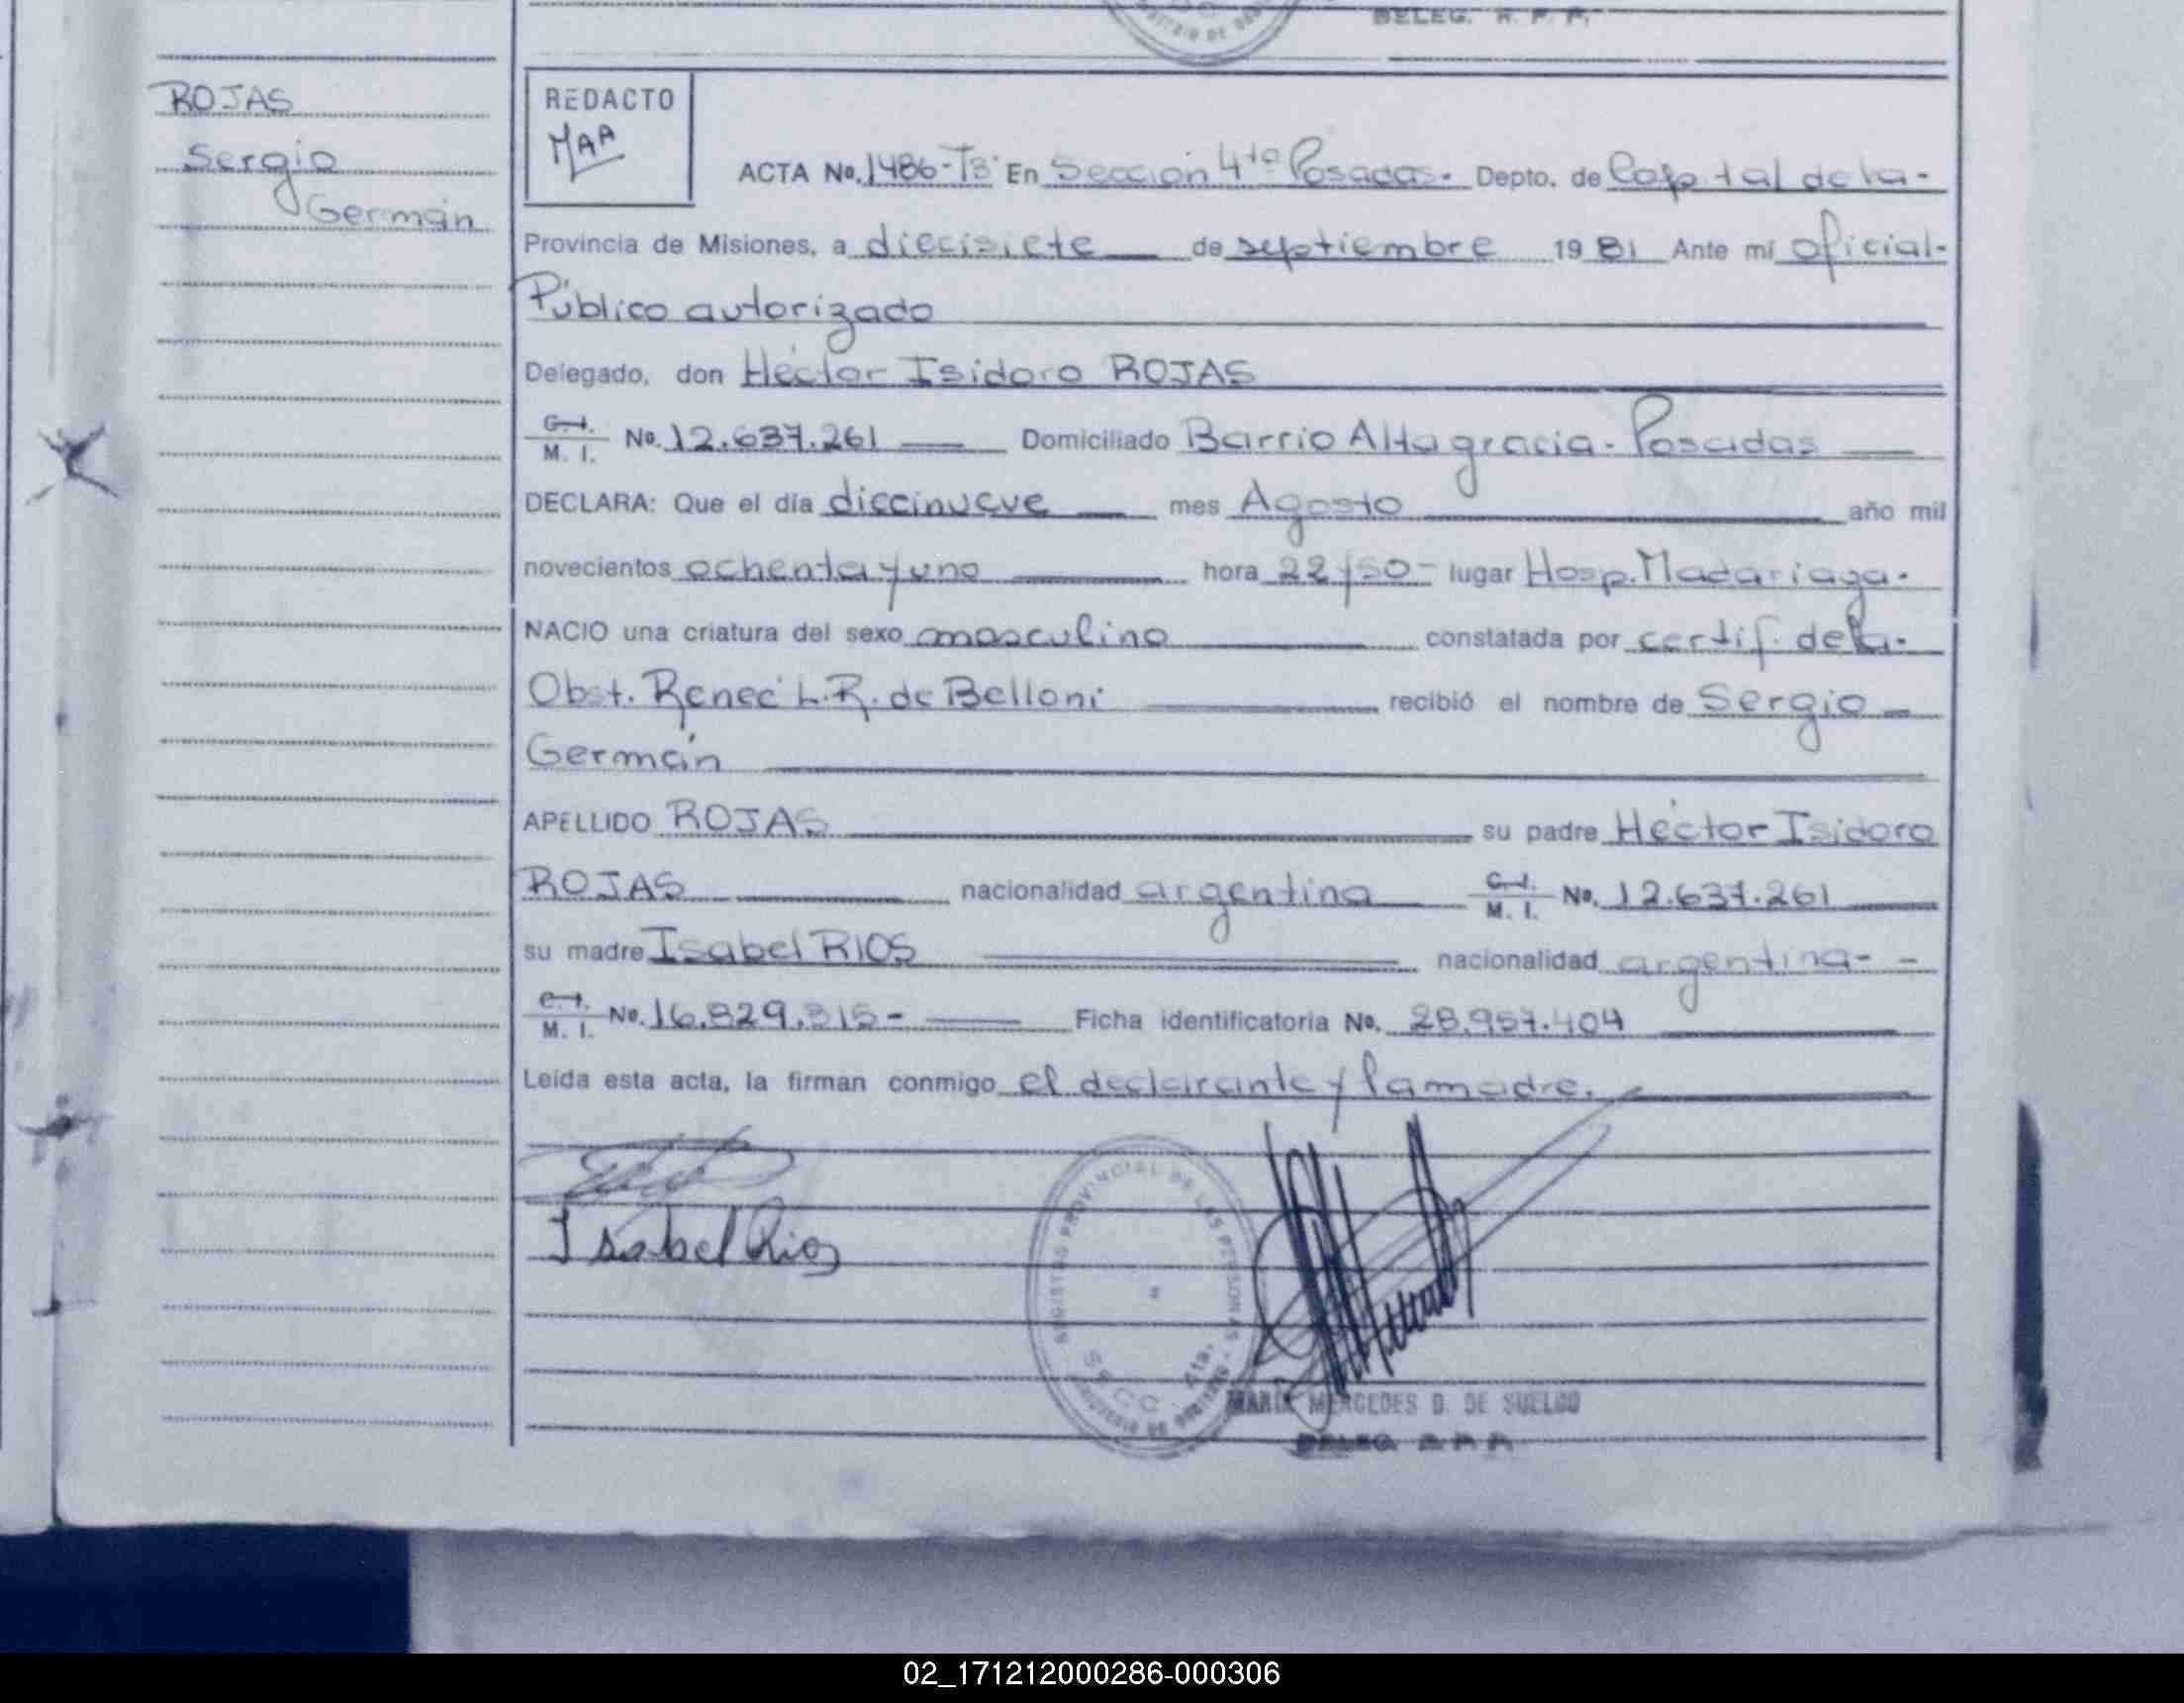 DELEG. R. P. P.
ROJAS
Sergio
Germán
REDACTO
MAA
ACTA No. 1486-T3º En Sección 4ta Posadas. Depto. de Capital de la-
Provincia de Misiones, a diecisiete de septiembre 1981 Ante mí oficial-
Público autorizado
Delegado, don Héctor Isidoro ROJAS
C. I.
M. I. No. 12.637.261 Domiciliado Barrio Altagracia - Posadas
DECLARA: Que el día diecinueve mes Agosto año mil
novecientos ochenta y uno hora 22/50- lugar Hosp. Madariaga.
NACIO una criatura del sexo masculino constatada por certif. de la-
Obst. Reneé L.R. de Belloni recibió el nombre de Sergio
Germán
APELLIDO ROJAS su padre Héctor Isidoro
ROJAS nacionalidad argentina C. I.
M. I. No. 12.637.261
su madre Isabel RIOS nacionalidad argentina- -
C. I.
M. I. No. 16.829.315- Ficha identificatoria No. 28.957.404
Leída esta acta, la firman conmigo el declarante y la madre.
Isabel Rios
REGISTRO PROVINCIAL DE LAS PERSONAS
SECC. 4ta.
MARIA MERCEDES D. DE SUELDO
DELEG. R. P. P.
02_171212000286-000306